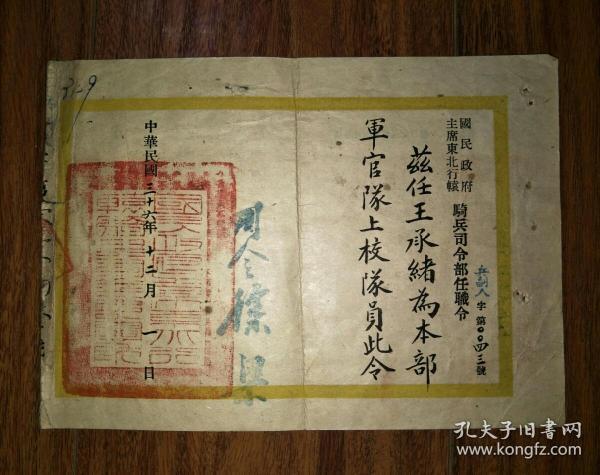 國民政府
主席東北行轅
騎兵司令部任職令
字第〇〇四三號
茲任王承緒為本部
軍官隊上校隊員此令
司令徐梁
中華民國三十六年十二月一日
孔夫子旧书网
www.kongfz.com